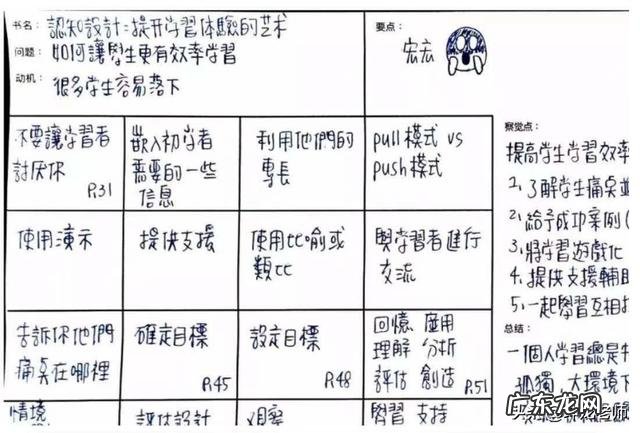 书名: 認知設計=提升学習体驗的艺术
问题: 如何讓學生更有效率学習
动机: 很多学生容易落下
要点:
宏宏
不要讓学習者
討厌你
P.31
嵌入初学者
需要的一些
信息
利用他們的
專長
pull模式 vs
push模式
使用演示
提供支援
使用比喻或
類比
與学習者進行
交流
告訴你他們
痛桌在哪裡
確定目標
P.45
設定目標
P.48
回憶 應用
理解 分析
評估 創造
P.51
情境
評估設計
观察
學習 支持
察觉点:
提高学生学習效率
1, 了解学生痛桌並
2, 給予成功案例(
3, 將学習遊戲化
4, 提供支援輔助
5, 一起學習互相
总结:
一個人学習總是
孤獨,大環境下
广东龙网